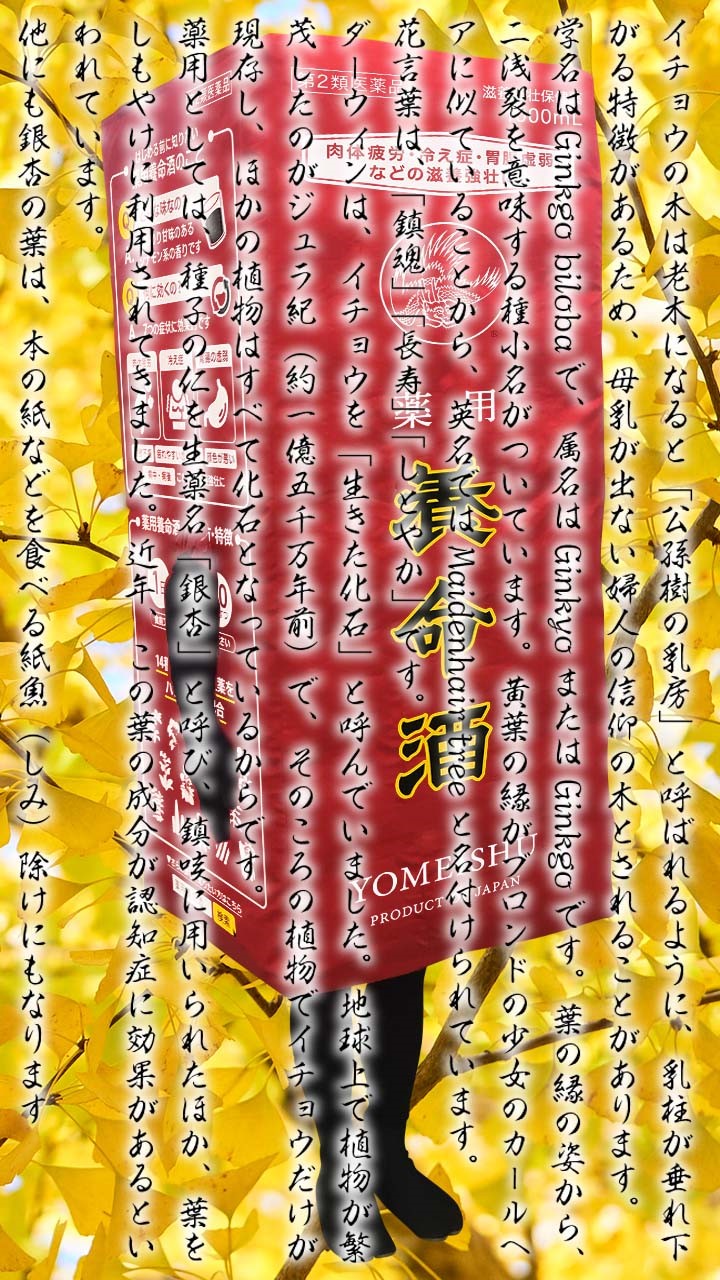 イチョウの木は老木になると「公孫樹の乳房」と呼ばれるように、乳柱が垂れ下
がる特徴があるため、母乳が出ない婦人の信仰の木とされることがあります。
学名は Ginkgo biloba で、属名は Ginkyo または Ginkgo です。葉の縁の姿から、
二浅裂を意味する種小名がついています。黄葉の縁がブロンドの少女のカールヘ
アに似ていることから、英名では Maidenhair tree と名付けられています。
花言葉は、「鎮魂」「長寿」「しとやか」です。
ダーウィンは、イチョウを「生きた化石」と呼んでいました。地球上で植物が繁
茂したのがジュラ紀（約一億五千万年前）で、そのころの植物でイチョウだけが
現存し、ほかの植物はすべて化石となっているからです。
薬用としては、種子の仁を生薬名「銀杏」と呼び、鎮咳に用いられたほか、葉を
しもやけに利用されてきました。近年、この葉の成分が認知症に効果があるとい
われています。
他にも銀杏の葉は、本の紙などを食べる紙魚（しみ）除けにもなります
第2類医薬品
肉体疲労・冷え症・胃腸虚弱
などの滋養強壮
薬用
養命酒
YOMEISHU
PRODUCT OF JAPAN